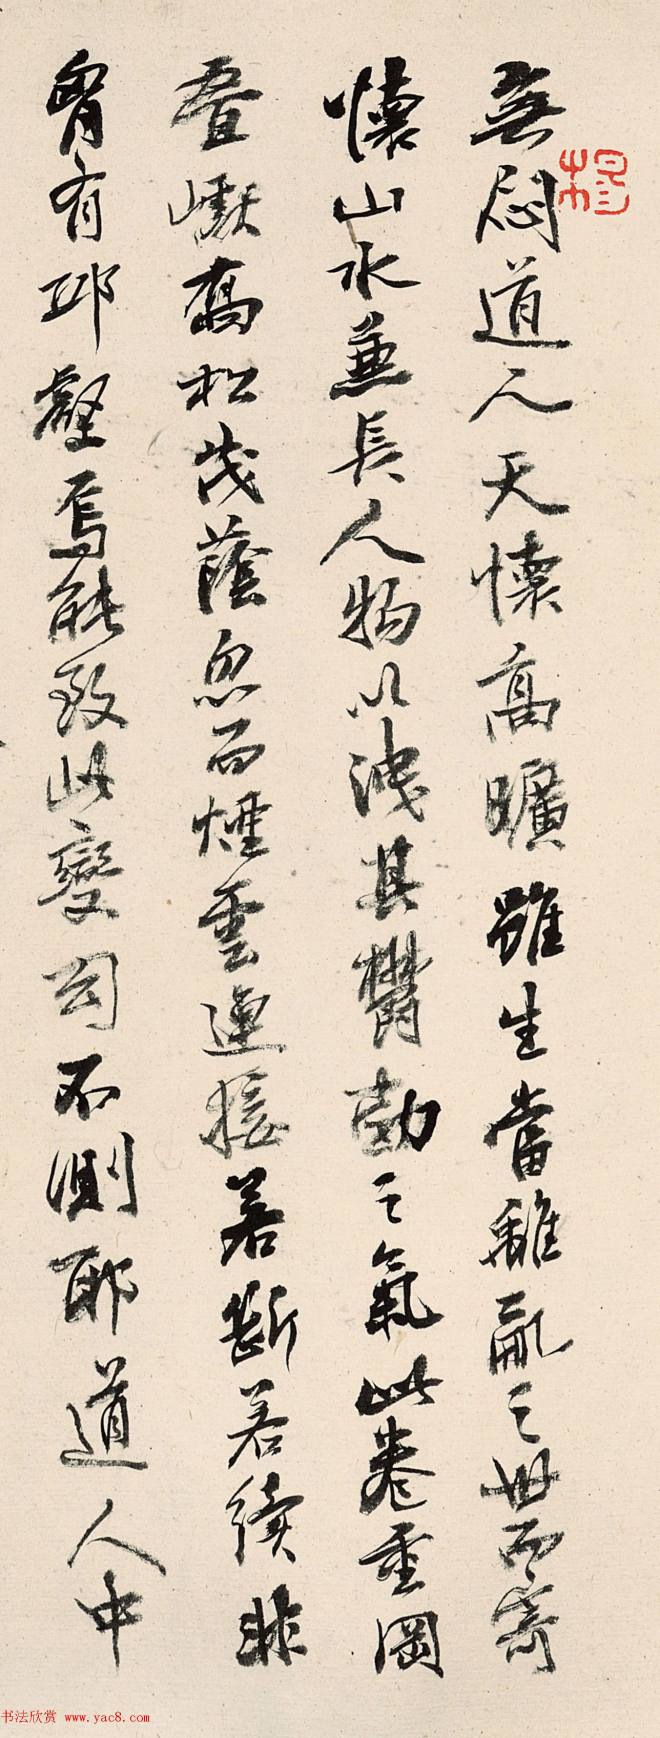 無悶道人天懷高曠雖生當離亂之世而寄
懷山水兼長人物以洩其鬱勃之氣此卷重岡
疊巘喬松茂蔭忽而煙雲連接若斷若續非
胷有邱壑焉能致此變幻不測耶道人中
書法欣赏 www.yac8.com